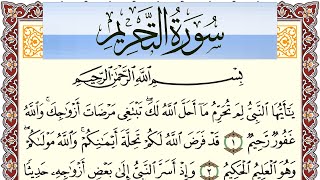 سُورَةُ التَّحْرِيمِ
بِسْمِ اللَّهِ الرَّحْمَٰنِ الرَّحِيمِ
يَٰٓأَيُّهَا النَّبِيُّ لِمَ تُحَرِّمُ مَآ أَحَلَّ اللَّهُ لَكَ ۖ تَبْتَغِي مَرْضَاتَ أَزْوَٰجِكَ ۚ وَاللَّهُ
غَفُورٌ رَّحِيمٌ ١ قَدْ فَرَضَ اللَّهُ لَكُمْ تَحِلَّةَ أَيْمَٰنِكُمْ ۚ وَاللَّهُ مَوْلَىٰكُمْ ۖ
وَهُوَ الْعَلِيمُ الْحَكِيمُ ٢ وَإِذْ أَسَرَّ النَّبِيُّ إِلَىٰ بَعْضِ أَزْوَٰجِهِ حَدِيثًا